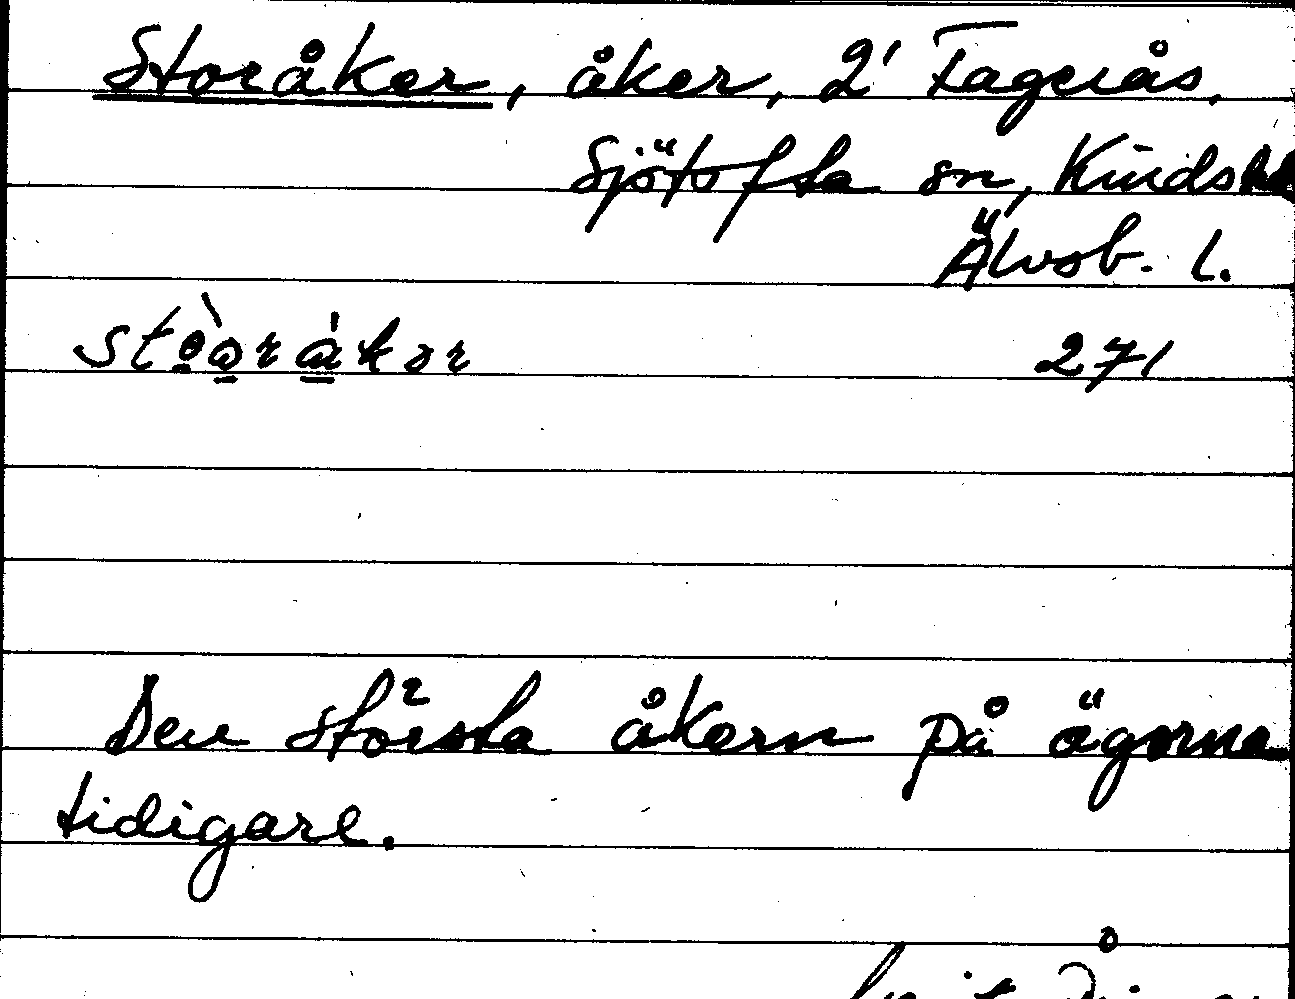 Storåker, åker, 2' Fagerås,
Sjötofta sn, Kinds hd
Älvsb. l.
271
Den största åkern på ägorna
tidigare.